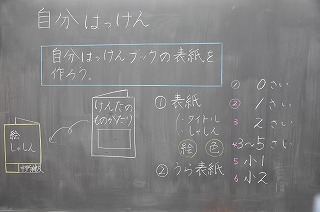 自分はっけん
自分はっけんブックの表紙を
作ろう。
絵
しゃしん
けんたの
ものがたり
① 表紙
・タイトル
・しゃしん
絵 色
② うら表紙
① 0さい
② 1さい
3 2さい
4 3~5さい
5 小1
6 小2